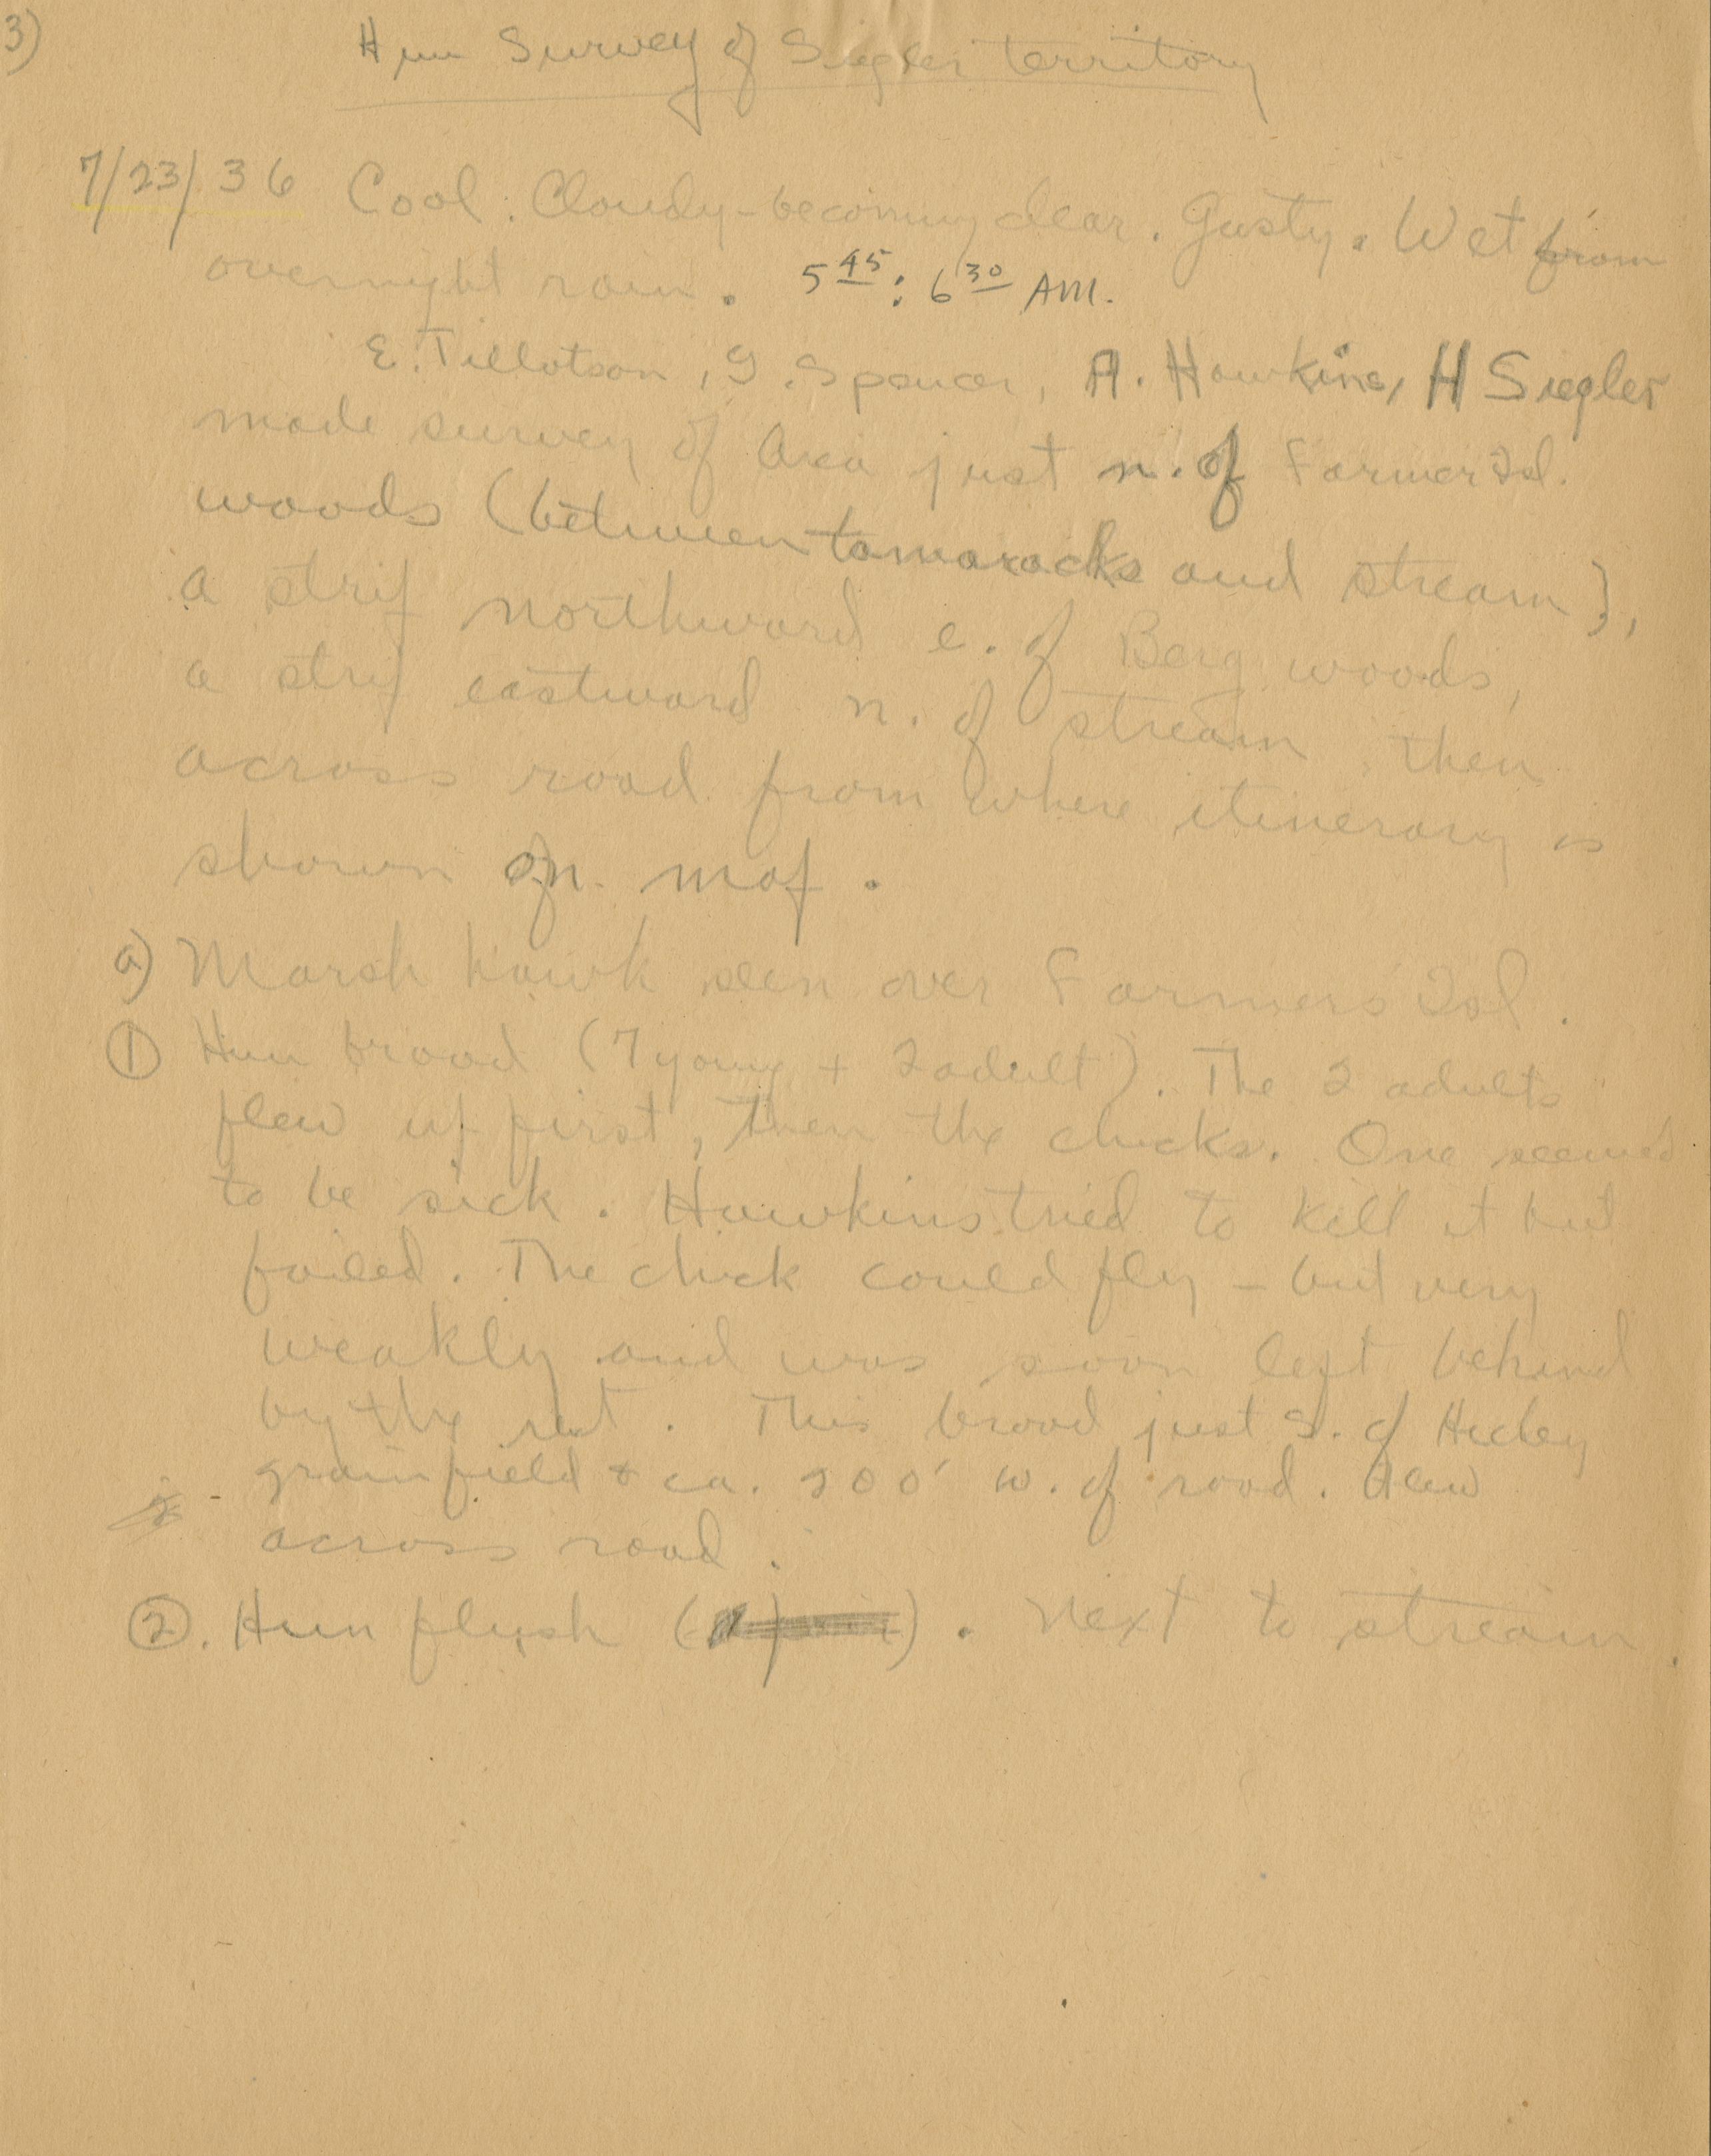 3)
Hun Survey of Siegler territory
7/23/36 Cool. Cloudy - becoming clear. Gusty. Wet from
overnight rain. 5 45 : 6 30 AM.
E. Tillotson, G. Spencer, A. Hawkins, H Siegler
made survey of Area just n. of Farmer Isl.
woods (between tamaracks and stream),
a strip northward e. of Berg woods,
a strip eastward n. of stream then
across road from where itinerary is
shown on map.
a) Marsh hawk seen over Farmers Isl.
① Hun brood (7 young + 2 adult). The 2 adults
flew up first, then the chicks. One seemed
to be sick. Hawkins tried to kill it but
failed. The chick could fly - but very
weakly and was soon left behind
by the rest. This brood just S. of Hickey
grainfield & ca. 200' w. of road. Flew
across road.
②. Hun flush ( ). Next to stream.